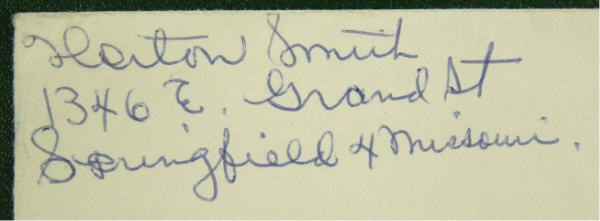 Horton Smith
1346 E. Grand St
Springfield 4 Missouri.